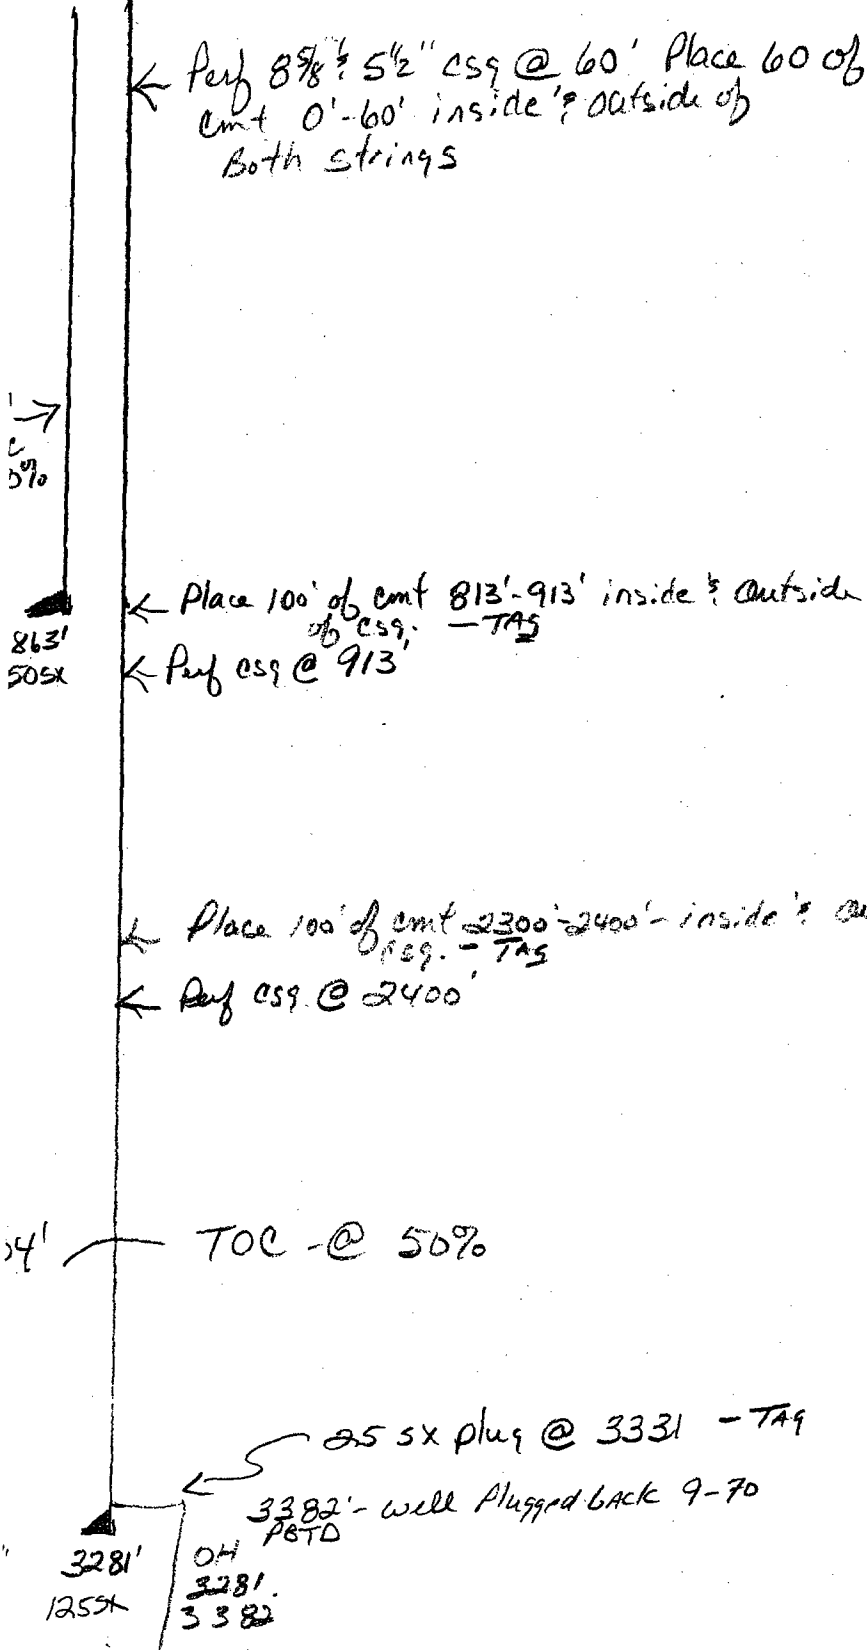 Perf 8 5/8 & 5 1/2" csg @ 60' Place 60 of
cmt 0'-60' inside & outside of
Both strings
%
Place 100' of cmt 813'-913' inside & Outside
of csg. - TAG
863'
50sx
Perf csg @ 913'
Place 100' of cmt 2300'-2400'- inside &
csg. - TAG
Perf csg. @ 2400'
4' TOC -@ 50%
25 sx plug @ 3331 - TAG
3382'- well Plugged back 9-70
PBTD
3281'
125sx
OH
3281.
3382